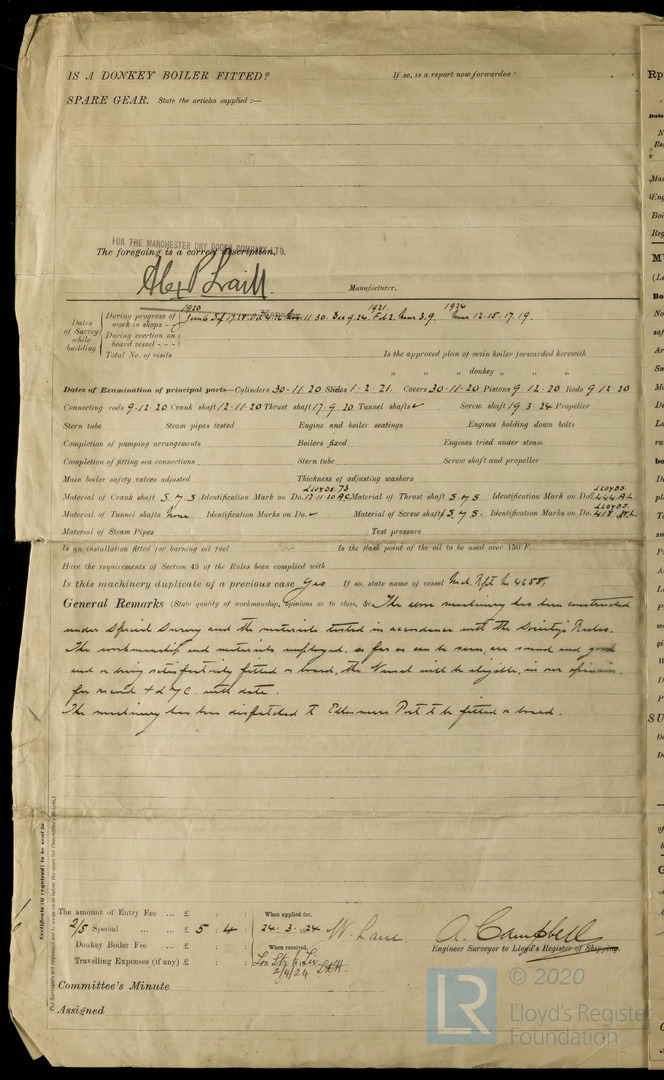 IS A DONKEY BOILER FITTED? If so, is a report now forwarded?
SPARE GEAR. State the articles supplied :—
FOR THE MANCHESTER DRY DOCKS COMPANY LTD.
The foregoing is a correct description,
Manufacturer.
Dates of Survey while building
1920 1921 1924
During progress of work in shops - -
11. 30. Dec 9. 24. Feb 2. Mar 3. 9. Mar 12. 15. 17. 19.
During erection on board vessel - - -
Total No. of visits
Is the approved plan of main boiler forwarded herewith
" " " donkey " " "
Dates of Examination of principal parts—Cylinders 30.11.20 Slides 1.2.21. Covers 30.11.20 Pistons 9.12.20 Rods 9.12.20
Connecting rods 9.12.20 Crank shaft 12.11.20 Thrust shaft 17.9.20 Tunnel shafts ✓ Screw shaft 19.3.24 Propeller
Stern tube Steam pipes tested Engine and boiler seatings Engines holding down bolts
Completion of pumping arrangements Boilers fixed Engines tried under steam
Completion of fitting sea connections Stern tube Screw shaft and propeller
Main boiler safety valves adjusted Thickness of adjusting washers
Material of Crank shaft S.M.S. Identification Mark on Do. LLOYDS 73 12.11.20 A.C. Material of Thrust shaft S.M.S Identification Mark on Do. LLOYDS
Material of Tunnel shafts None Identification Marks on Do. ✓ Material of Screw shafts S.M.S. Identification Marks on Do. LLOYDS
Material of Steam Pipes Test pressure
Is an installation fitted for burning oil fuel Is the flash point of the oil to be used over 150°F.
Have the requirements of Section 49 of the Rules been complied with
Is this machinery duplicate of a previous case Yes If so, state name of vessel Rpt No 4658,
General Remarks (State quality of workmanship, opinions as to class, &c. The above machinery has been constructed
under Special Survey and the materials tested in accordance with the Society's Rules.
The workmanship and materials employed, so far as can be seen, are sound and good
and on being satisfactorily fitted on board, the Vessel will be eligible, in our opinion,
for record + L.M.C. with date.
The machinery has been dispatched to Ellesmere Port to be fitted on board.
Certificate (if required) to be sent to
The amount of Entry Fee ... £ : : When applied for,
2/5 Special ... ... £ 5 : 4 : 24.3.1924
Donkey Boiler Fee ... £ : : When received,
Travelling Expenses (if any) £ : : 2/4/24
A. Campbell
Engineer Surveyor to Lloyd's Register of Shipping.
Committee's Minute
Assigned
LR
© 2020
Lloyd's Register
Foundation